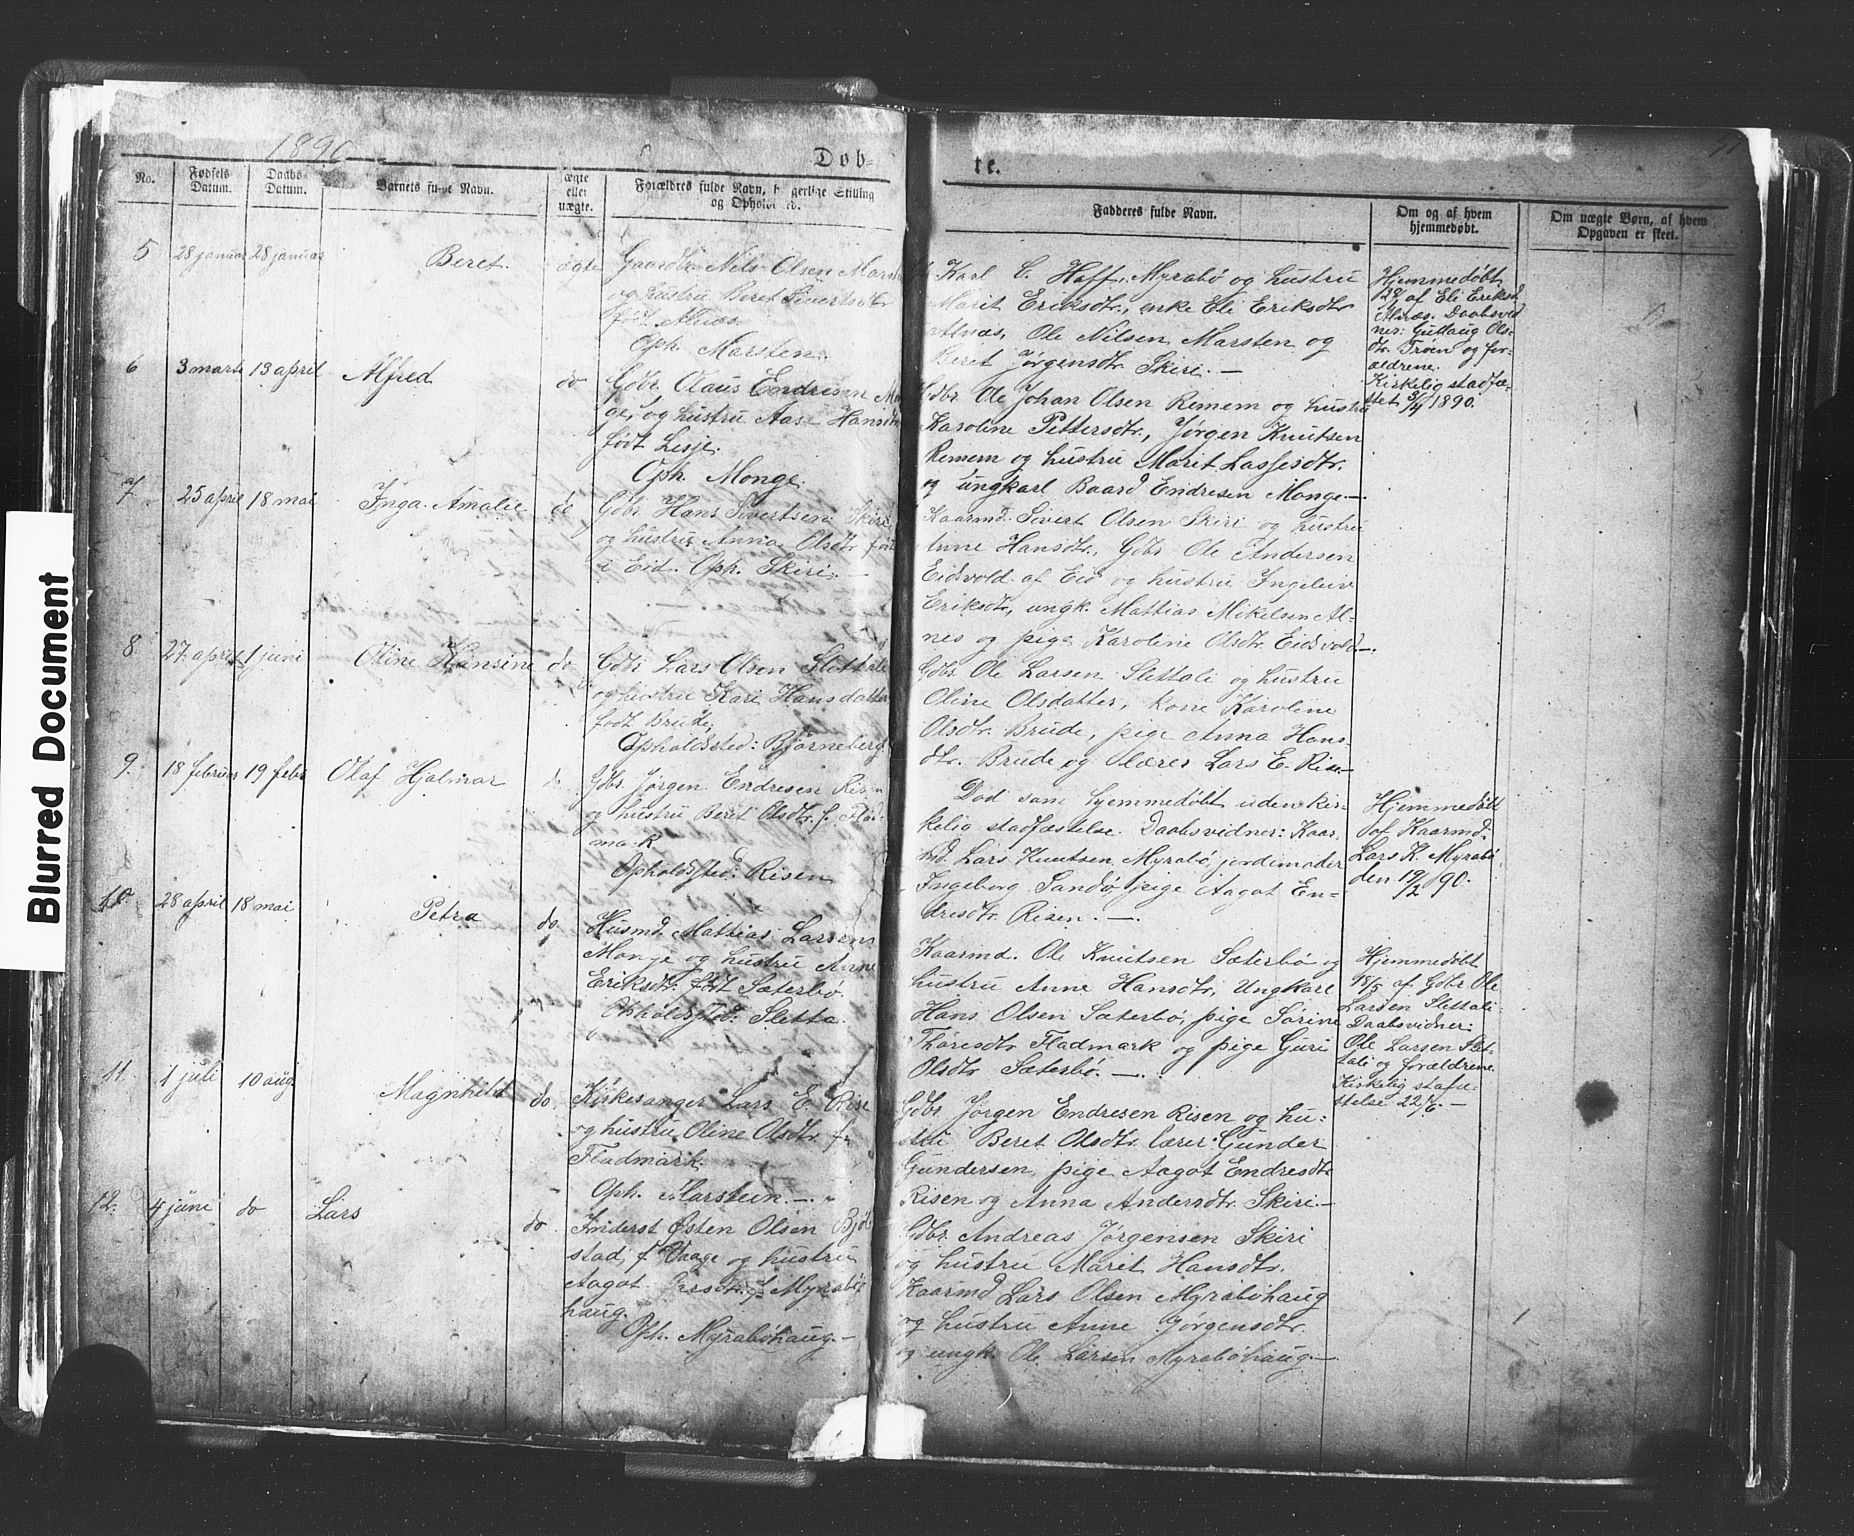 Blurred Document
1890
Døb-
No.
Fødsels Datum.
Daabs Datum.
Barnets fulde Navn.
ægte eller uægte.
Forældres fulde Navn, borgerlige Stilling
og Opholdssted.
5
28 januar
28 januar
Beret.
ægte
Gaardbr. Nils Olsen Marsten
og hustru Beret Sivertsdtr
født Alnæs.
Oph. Marsten.
6
3 marts
13 april
Alfred
do
Gdbr. Olaus Endresen
og hustru Aase Hansdtr
født Lesje.
Oph. Monge.
7.
25 april
18 mai
Inga Amalie
do
Gdbr. Hans Sivertsen Skiri
og hustru Anna Olsdtr født
i Eid. Oph. Skiri.—
8
27. april
1 juni
Oline Hansine
do
Gdbr Lars Olsen Slettali
og hustru Kari Hansdatter
født Brude,
Opholdssted: Bjørneberg
9.
18 februar
19 febr
Olaf Hjalmar
do
Gdbr. Jørgen Endresen Risen
og hustru Beret Olsdtr. f. Flad-
mark
Opholdssted: Risen
10.
28 april
18 mai
Petra
do.
Husmd. Mattias Larsen
Monge og hustru Anne
Eriksdtr. født Sæterbø.
Opholdssted: Sletta.
11.
1 juli
10 aug.
Magnhild
do.
Kirkesanger Lars E. Rise
og hustru Oline Olsdtr. f.
Fladmark.
Oph. Marstein.—
12.
4 juni
do
Lars
do
Inderst Østen Olsen Bjø
stad, f. Vaage og hustru
Aagot f. Myrabø
haug.
Oph. Myrabøhaug.—
te.
Fadderes fulde Navn.
Om og af hvem
hjemmedøbt.
Om uægte Børn, af hvem
Opgaven er skeet.
Karl C. Hoff, Myrabø og hustru
Marit Eriksdtr., enke Eli Eriksdtr
Alnæs, Ole Nilsen Marsten og
Beret Jørgensdtr Skiri.—
Hjemmedøbt
af Eli Eriksd
Alnæs. Daabsvid
ner: Gunlaug Ols-
dtr. Trøen og for-
ældrene.
Kirkelig stadfæ-
stet 3/4 1890.
Gdbr. Ole Johan Olsen Remem og hustru
Karoline Pettersdtr., Jørgen Knutsen
Remem og hustru Marit Lassesdtr.
og ungkarl Baard Endresen Monge—
Kaarmd. Sivert Olsen Skiri og hustru
Anne Hansdtr., Gdbr Ole Andersen
Eidsvold af Eid og hustru Ingeleiv
Eriksdtr, ungk. Mattias Mikelsen Al-
nes og pige Karoline Olsdtr. Eidsvold—.
Gdbr. Ole Larsen Slettali og hustru
Oline Olsdatter, kone Karoline
Olsdtr. Brude, pige Anna Hans-
dtr. Brude og lærer Lars E. Rise—
Død som hjemmedøbt uden kir-
kelig stadfæstelse. Daabsvidner: Kaar-
md. Lars Knutsen Myrabø, jordemoder
Ingeborg Sandø, pige Aagot En-
dresdtr. Risen.—
Hjemmedøbt
af Kaarmd.
Lars K. Myrabø
den 19/2 90.
Kaarmd. Ole Knutsen Sæterbø og
hustru Anne Hansdtr, Ungkarl
Hans Olsen Sæterbø, pige Sørine
Thoresdtr Fladmark og pige Guri
Olsdtr Sæterbø.—.
Hjemmedøbt
18/5 af Gdbr Ole
Larsen Slettali.
Daabsvidner:
Ole Larsen Slet-
tali og forældrene.
Kirkelig stadfæ-
stelse 22/6.—
Gdbr. Jørgen Endresen Risen og hu-
stru Beret Olsdtr. lærer Gunder
Gundersen, pige Aagot Endresdtr
Risen og Anna Andersdtr. Skiri—
Gdbr. Andreas Jørgensen Skiri
og hustru Marit Hansdtr.
Kaarmd Lars Olsen Myrabøhaug
og hustru Anne Jørgensdtr.
og ungk. Ole Larsen Myrabøhaug.—